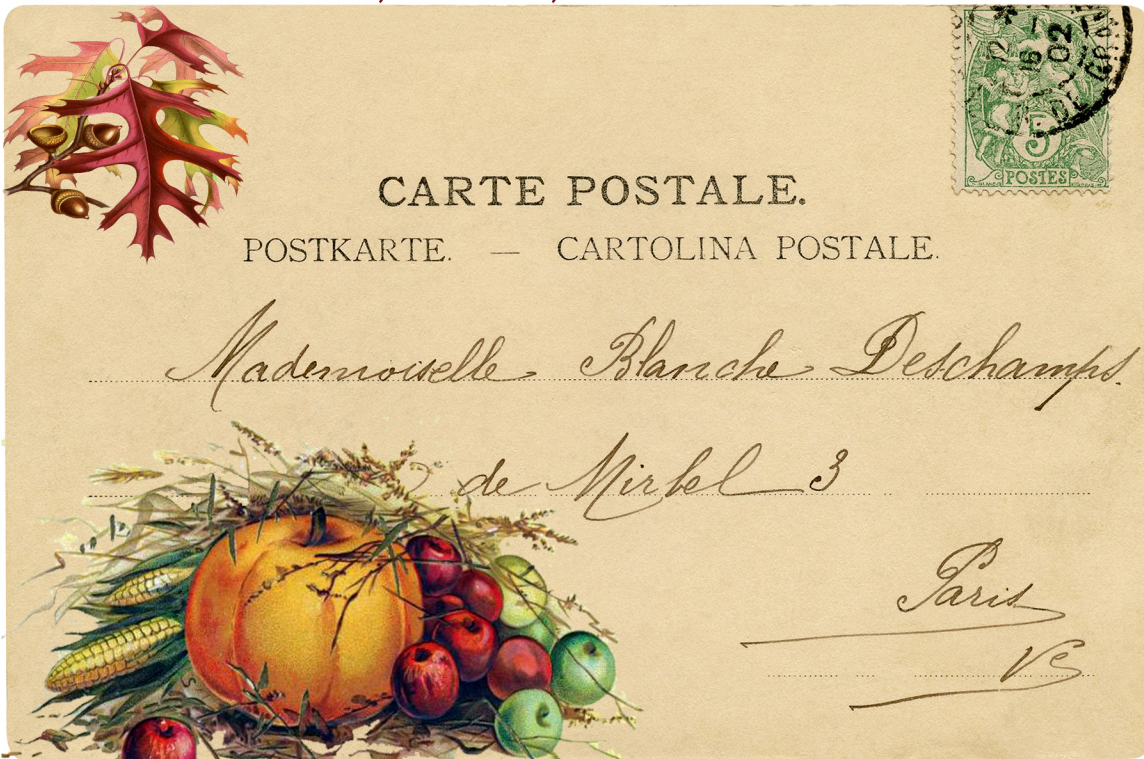 12
16
02
DE GRA
5
POSTES
CARTE POSTALE.
POSTKARTE. — CARTOLINA POSTALE.
Mademoiselle Blanche Deschamps.
de Mirbel 3
Paris
Ve